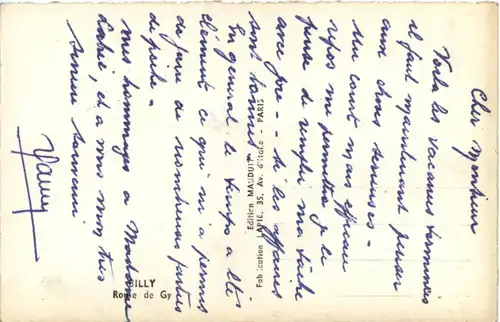 Cher Monsieur
Voilà les vacances terminées
il faut maintenant penser
aux choses sérieuses -
un court mais efficace
repos me permettra de
de remplir ma tâche
avec joie - - si les affaires
sont bonnes
En général le temps a été
clément ce qui m'a permis
de faire de nombreuses parties
de pêche -
Mes hommages à Madame
et à vous mon très
bon souvenir
Edition MAUDUIT
Fabrication LAPIE, 35, Av. d'Italie - PARIS
GILLY
Route de Gy